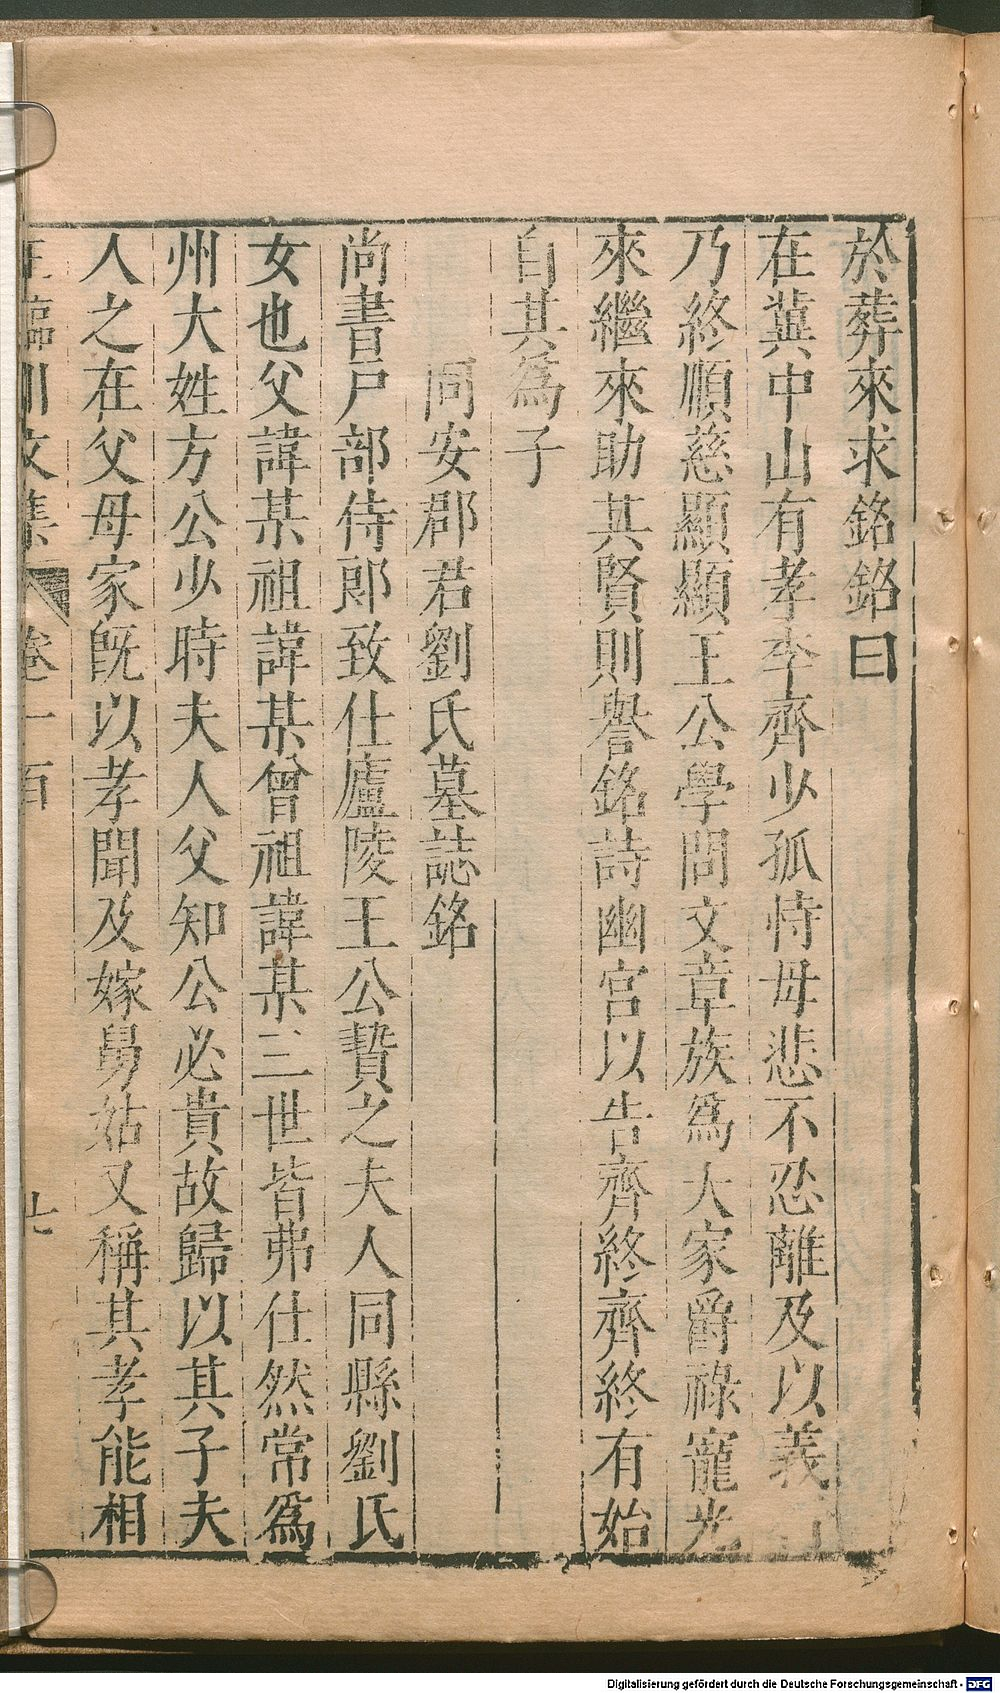 於葬來求銘銘曰
在冀中山有孝李齊少孤恃母悲不忍離及以義
乃終順慈顯顯王公學問文章族爲大家爵祿寵光
來繼來助其賢則譽銘詩幽宮以告齊終齊終有始
自其爲子
同安郡君劉氏墓誌銘
尚書戸部侍郎致仕廬陵王公贄之夫人同縣劉氏
女也父諱某祖諱某曾祖諱某三世皆弗仕然常爲
州大姓方公少時夫人父知公必貴故歸以其子夫
人之在父母家旣以孝聞及嫁舅姑又稱其孝能相
王臨川文集 卷一百 七
Digitalisierung gefördert durch die Deutsche Forschungsgemeinschaft - DFG